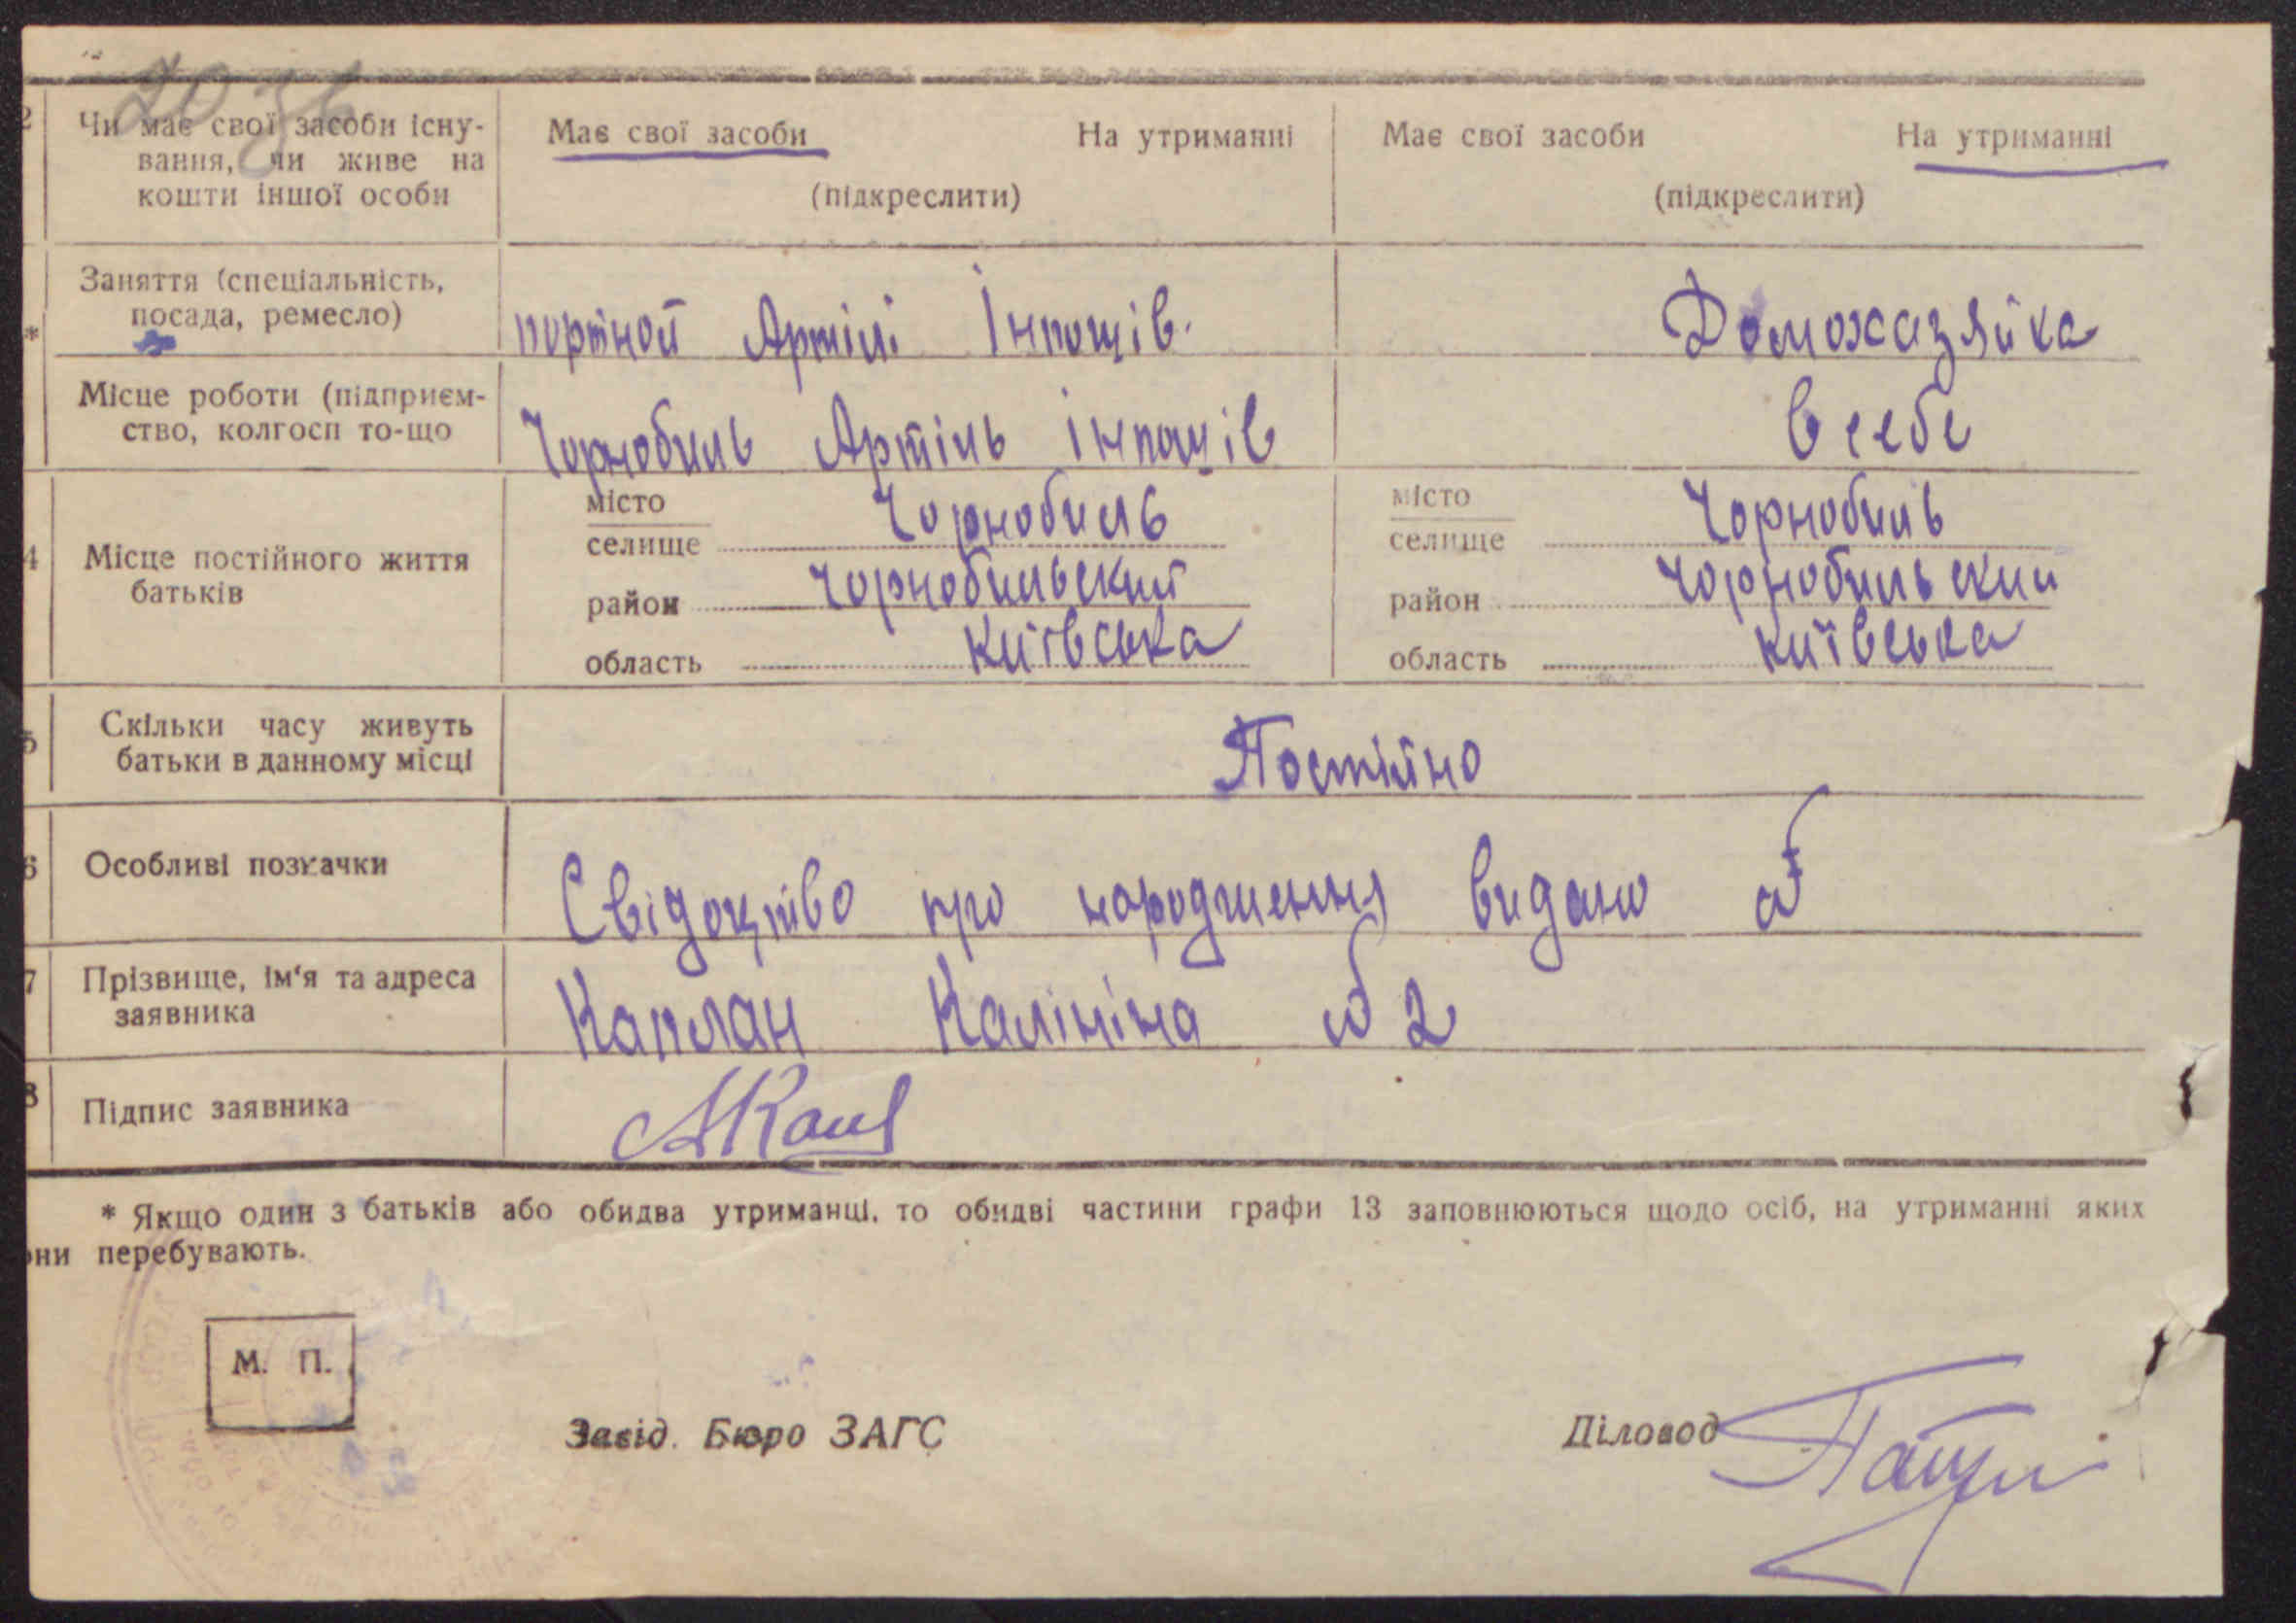 2 Чи має свої засоби існу- Має свої засоби На утриманні Має свої засоби На утриманні
вання, чи живе на
кошти іншої особи (підкреслити) (підкреслити)
Заняття (спеціальність,
* посада, ремесло) портной Артілі Інпошів. Домохазяйка
Місце роботи (підприєм-
ство, колгосп то-що Чорнобиль Артіль інпошів в себе
місто Чорнобиль місто Чорнобиль
селище селище
4 Місце постійного життя
батьків
район Чорнобильский район Чорнобильский
область Київська область Київська
5 Скільки часу живуть
батьки в данному місці Постійно
6 Особливі позначки Свідоцтво про народження видано
7 Прізвище, ім'я та адреса
заявника Каплан Калініна № 2
8 Підпис заявника
* Якщо один з батьків або обидва утриманці, то обидві частини графи 13 заповнюються щодо осіб, на утриманні яких
они перебувають.
М. П.
Завід. Бюро ЗАГС Діловод